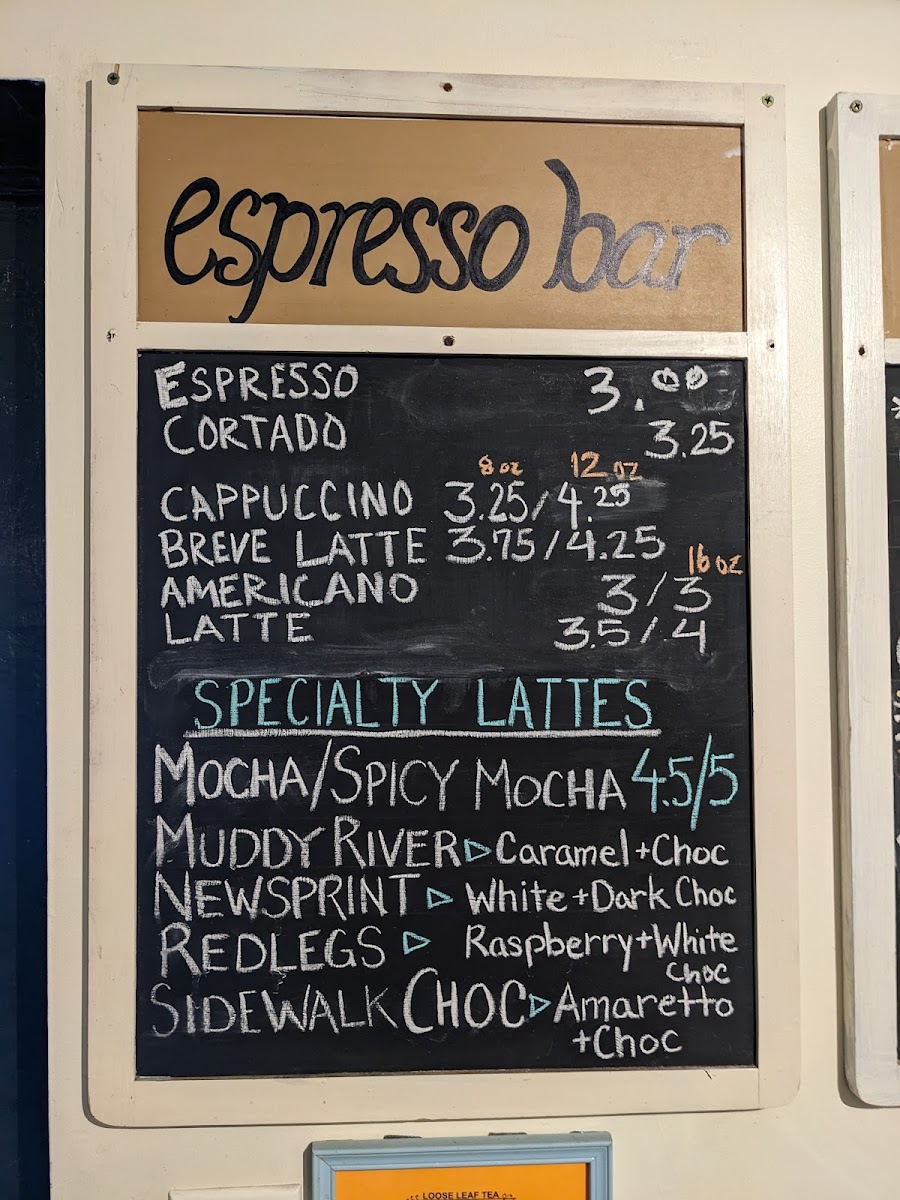 espresso bar
ESPRESSO 3.00
CORTADO 3.25
8 oz 12 oz
CAPPUCCINO 3.25/4.25
BREVE LATTE 3.75/4.25
16 oz
AMERICANO 3/3
LATTE 3.5/4
SPECIALTY LATTES
MOCHA/SPICY MOCHA 4.5/5
MUDDY RIVER ▷ Caramel + Choc
NEWSPRINT ▷ White + Dark Choc
REDLEGS ▷ Raspberry + White
Choc
SIDEWALK CHOC ▷ Amaretto
+ Choc
LOOSE LEAF TEA